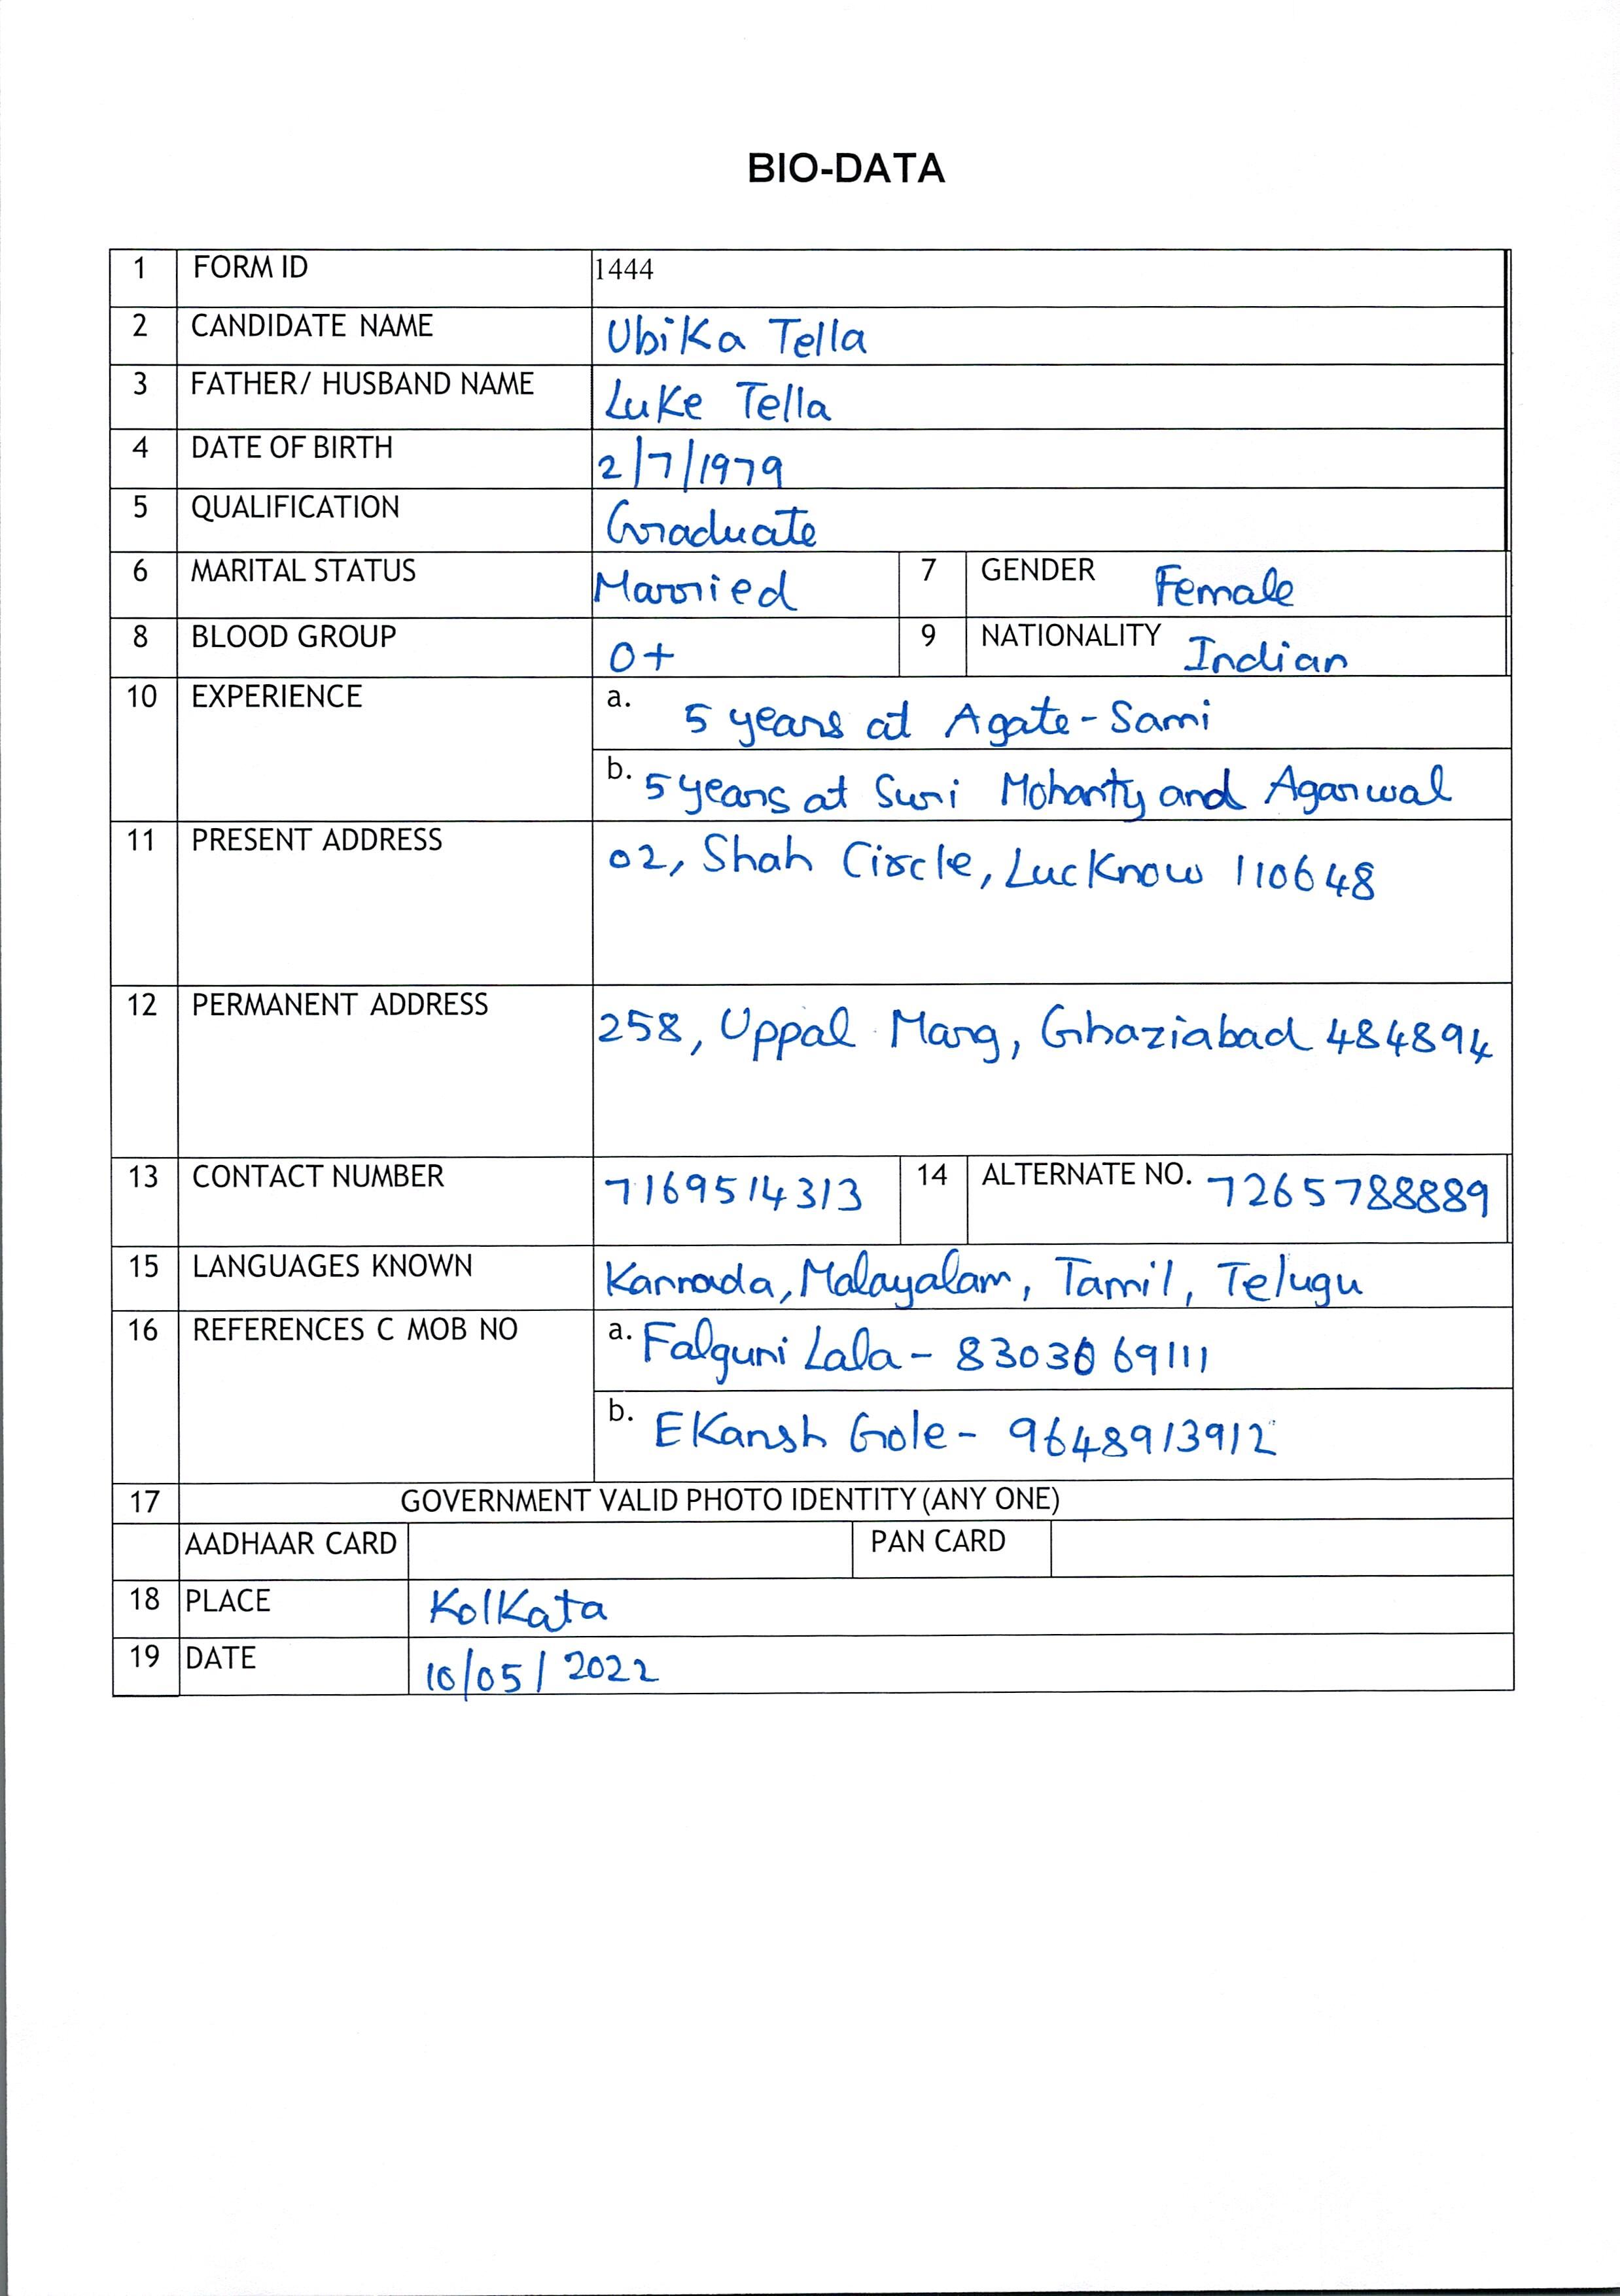 BIO-DATA
1 FORM ID 1444
2 CANDIDATE NAME Ubika Tella
3 FATHER/ HUSBAND NAME Luke Tella
4 DATE OF BIRTH 2/7/1979
5 QUALIFICATION Graduate
6 MARITAL STATUS Married 7 GENDER Female
8 BLOOD GROUP O+ 9 NATIONALITY Indian
10 EXPERIENCE a. 5 years at Agate-Sami
b. 5 years at Suri Mohanty and Agarwal
11 PRESENT ADDRESS 02, Shah Circle, Lucknow 110648
12 PERMANENT ADDRESS 258, Uppal Marg, Ghaziabad 484894
13 CONTACT NUMBER 7169514313 14 ALTERNATE NO. 7265788889
15 LANGUAGES KNOWN Kannada, Malayalam, Tamil, Telugu
16 REFERENCES C MOB NO a. Falguni Lala - 8303069111
b. Ekansh Gole - 9648913912
17 GOVERNMENT VALID PHOTO IDENTITY (ANY ONE)
AADHAAR CARD PAN CARD
18 PLACE Kolkata
19 DATE 10/05/2022